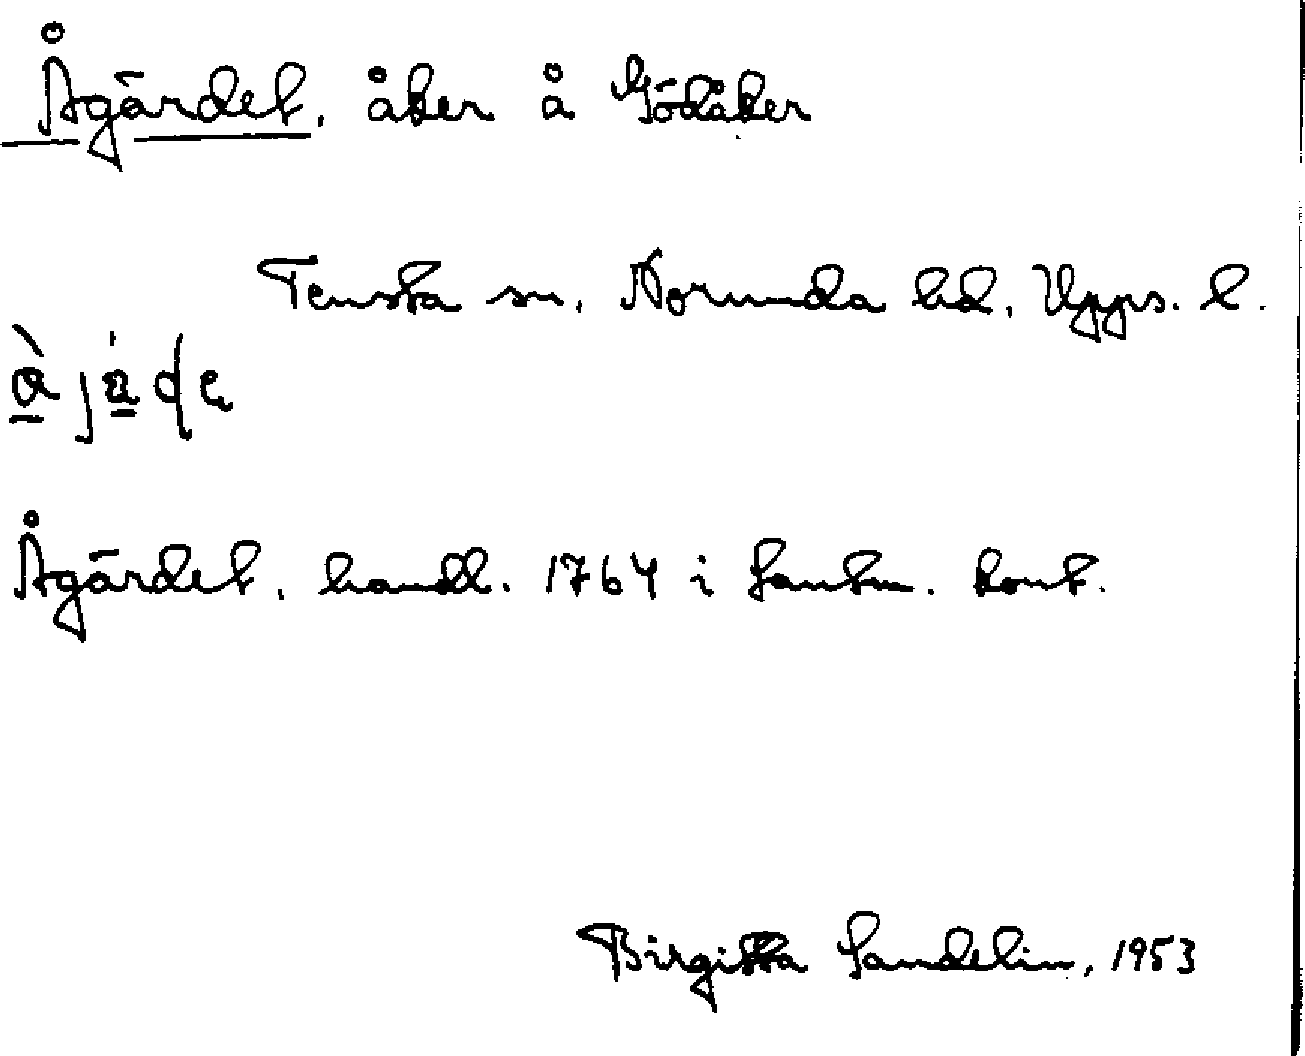 Ågärdet, åker å Gödåker
Tensta sn, Norunda hd, Upps. l.
Ågärdet, handl. 1764 i Lantm. kont.
Birgitta Sandelin, 1953